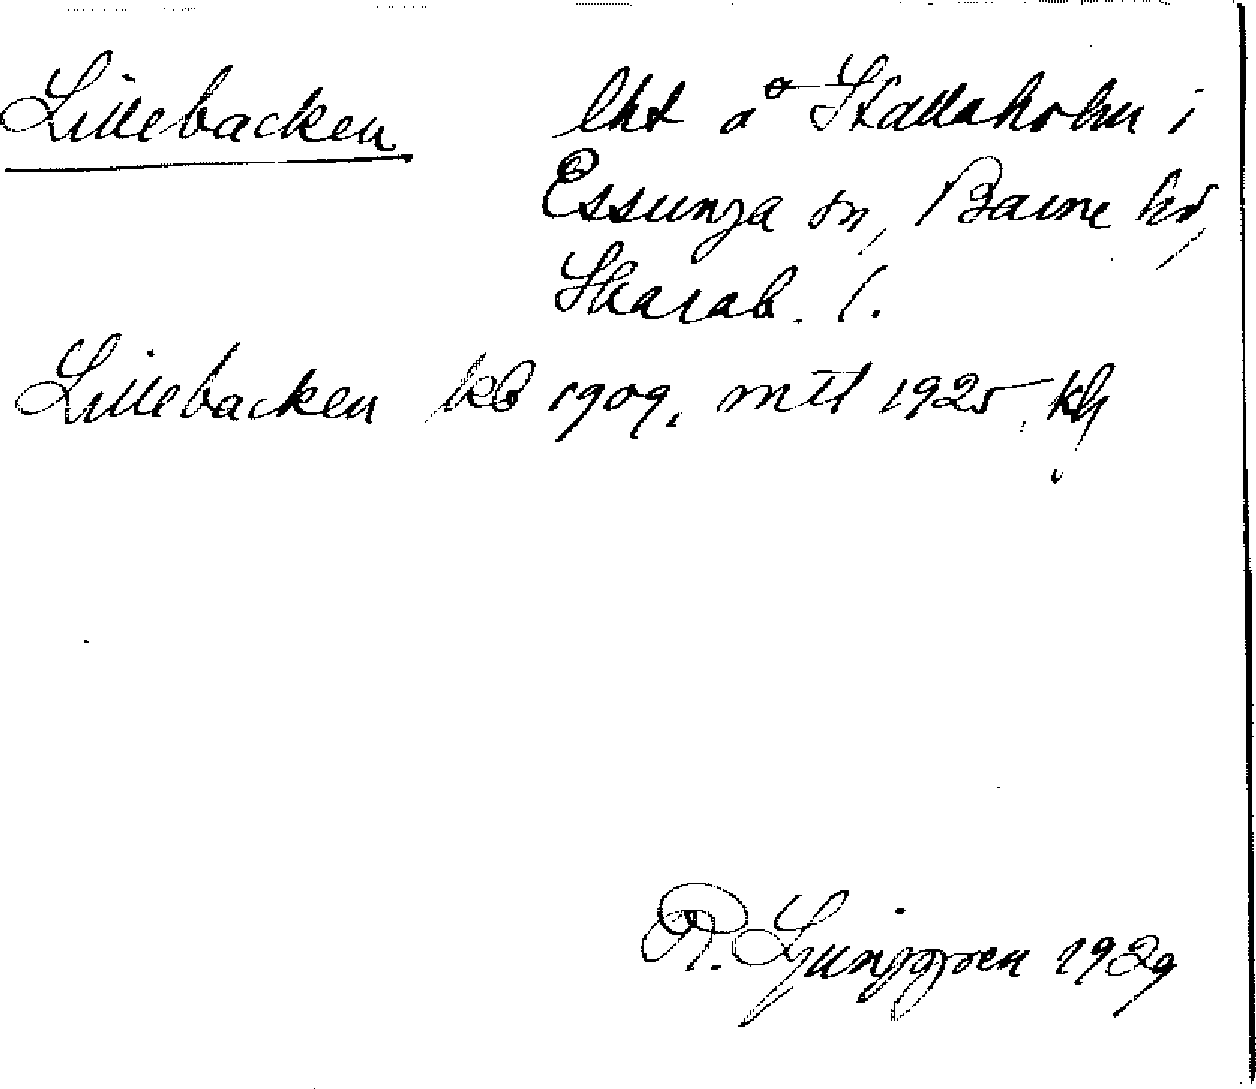 Lillebacken lht å Stallaholm i
Essunga sn, Barne hd,
Skarab. l.
Lillebacken kb 1909, mtl 1925
R. Ljunggren 1929